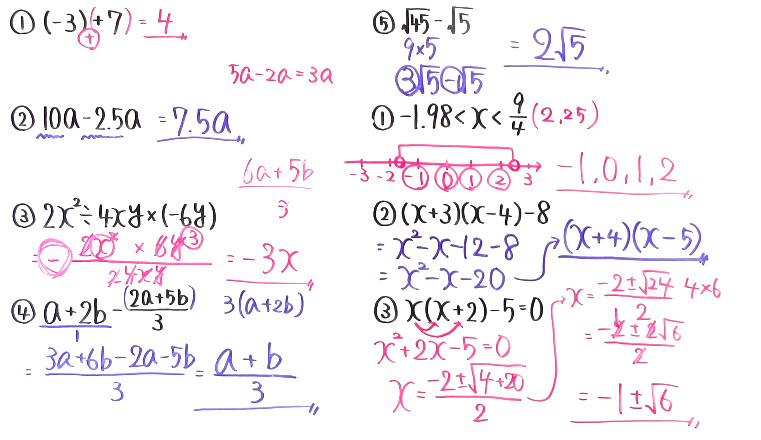 ① (-3)(+7) = 4
+
5a-2a=3a
② 10a-2.5a = 7.5a
6a+5b
③ 2x²÷4xy×(-6y)
= - 2x² × 6y 3 / 2 4xy = -3x
④ a+2b - (2a+5b)/3
1
3(a+2b)
= 3a+6b-2a-5b/3 = a+b/3
⑤ √45-√5
9×5
= 2√5
3√5-1√5
① -1.98<x<9/4 (2,25)
-3 -2 -1 0 1 2 3
-1,0,1,2
② (x+3)(x-4)-8
= x²-x-12-8
= x²-x-20
(x+4)(x-5)
③ x(x+2)-5=0
x²+2x-5=0
x = -2±√4+20/2
x = -2±√24/2 4×6
= -2±2√6/2
= -1±√6